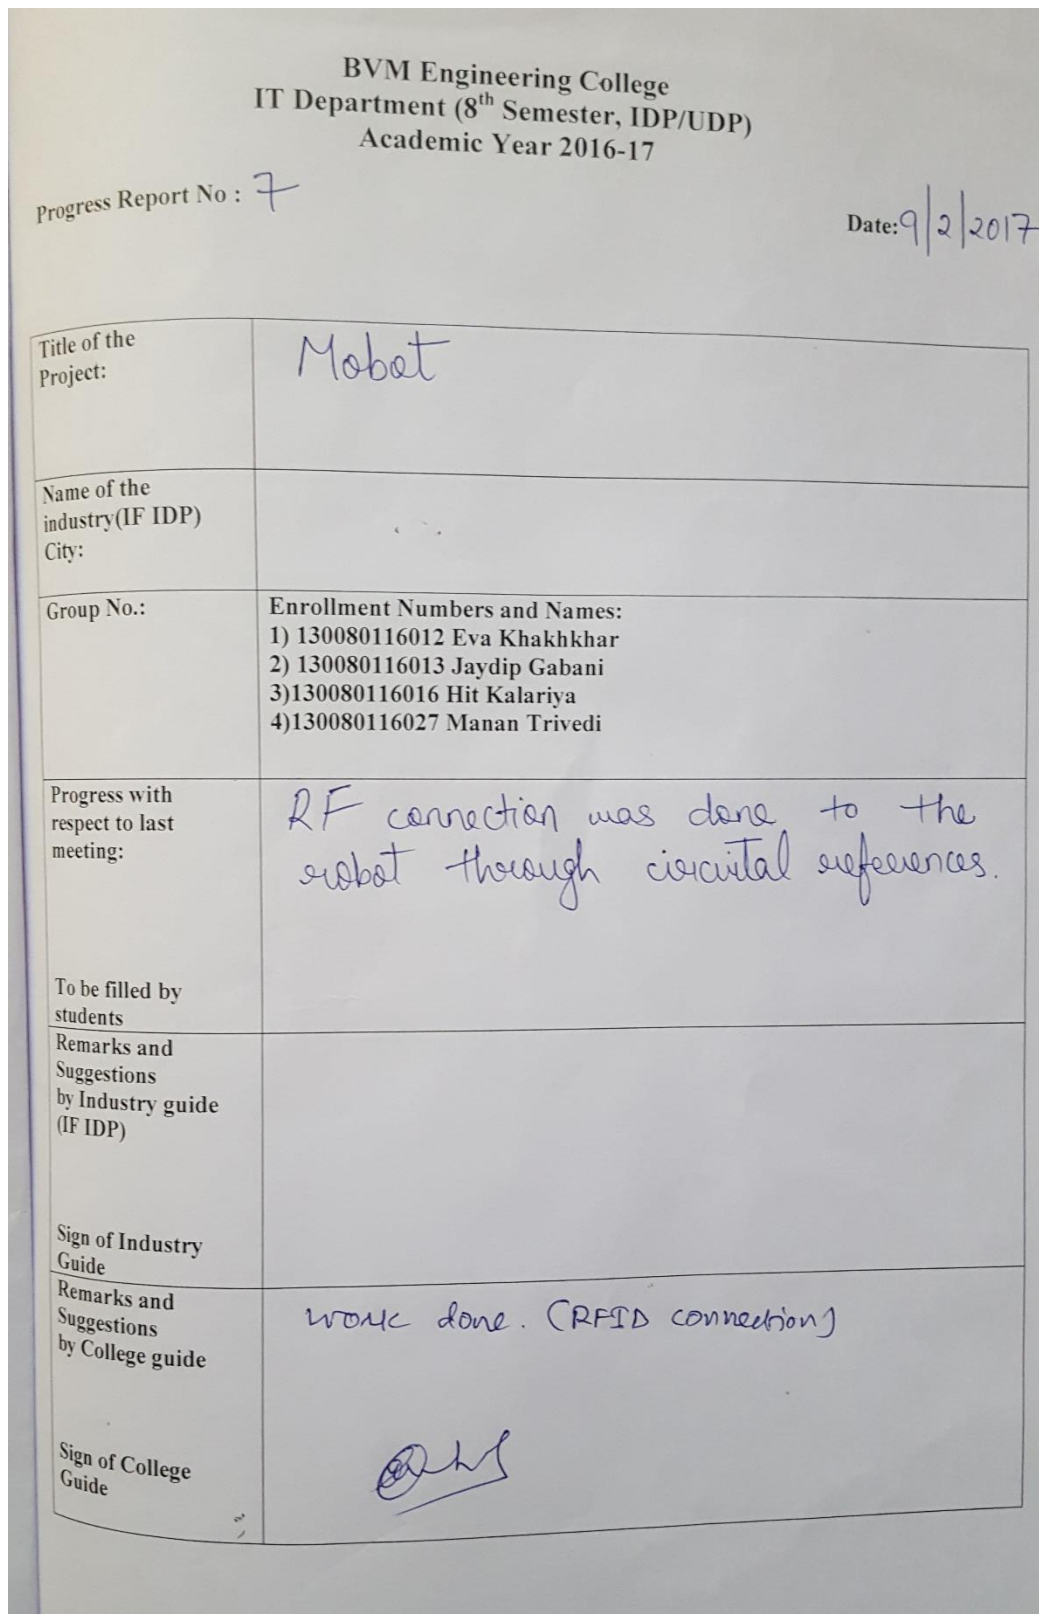 BVM Engineering College
IT Department (8th Semester, IDP/UDP)
Academic Year 2016-17
Progress Report No : 7
Date: 9/2/2017
Title of the
Project:
Mobot
Name of the
industry(IF IDP)
City:
Group No.:
Enrollment Numbers and Names:
1) 130080116012 Eva Khakhkhar
2) 130080116013 Jaydip Gabani
3)130080116016 Hit Kalariya
4)130080116027 Manan Trivedi
Progress with
respect to last
meeting:
RF connection was done to the
robot through circuital references.
To be filled by
students
Remarks and
Suggestions
by Industry guide
(IF IDP)
Sign of Industry
Guide
Remarks and
Suggestions
by College guide
work done. (RFID connection)
Sign of College
Guide